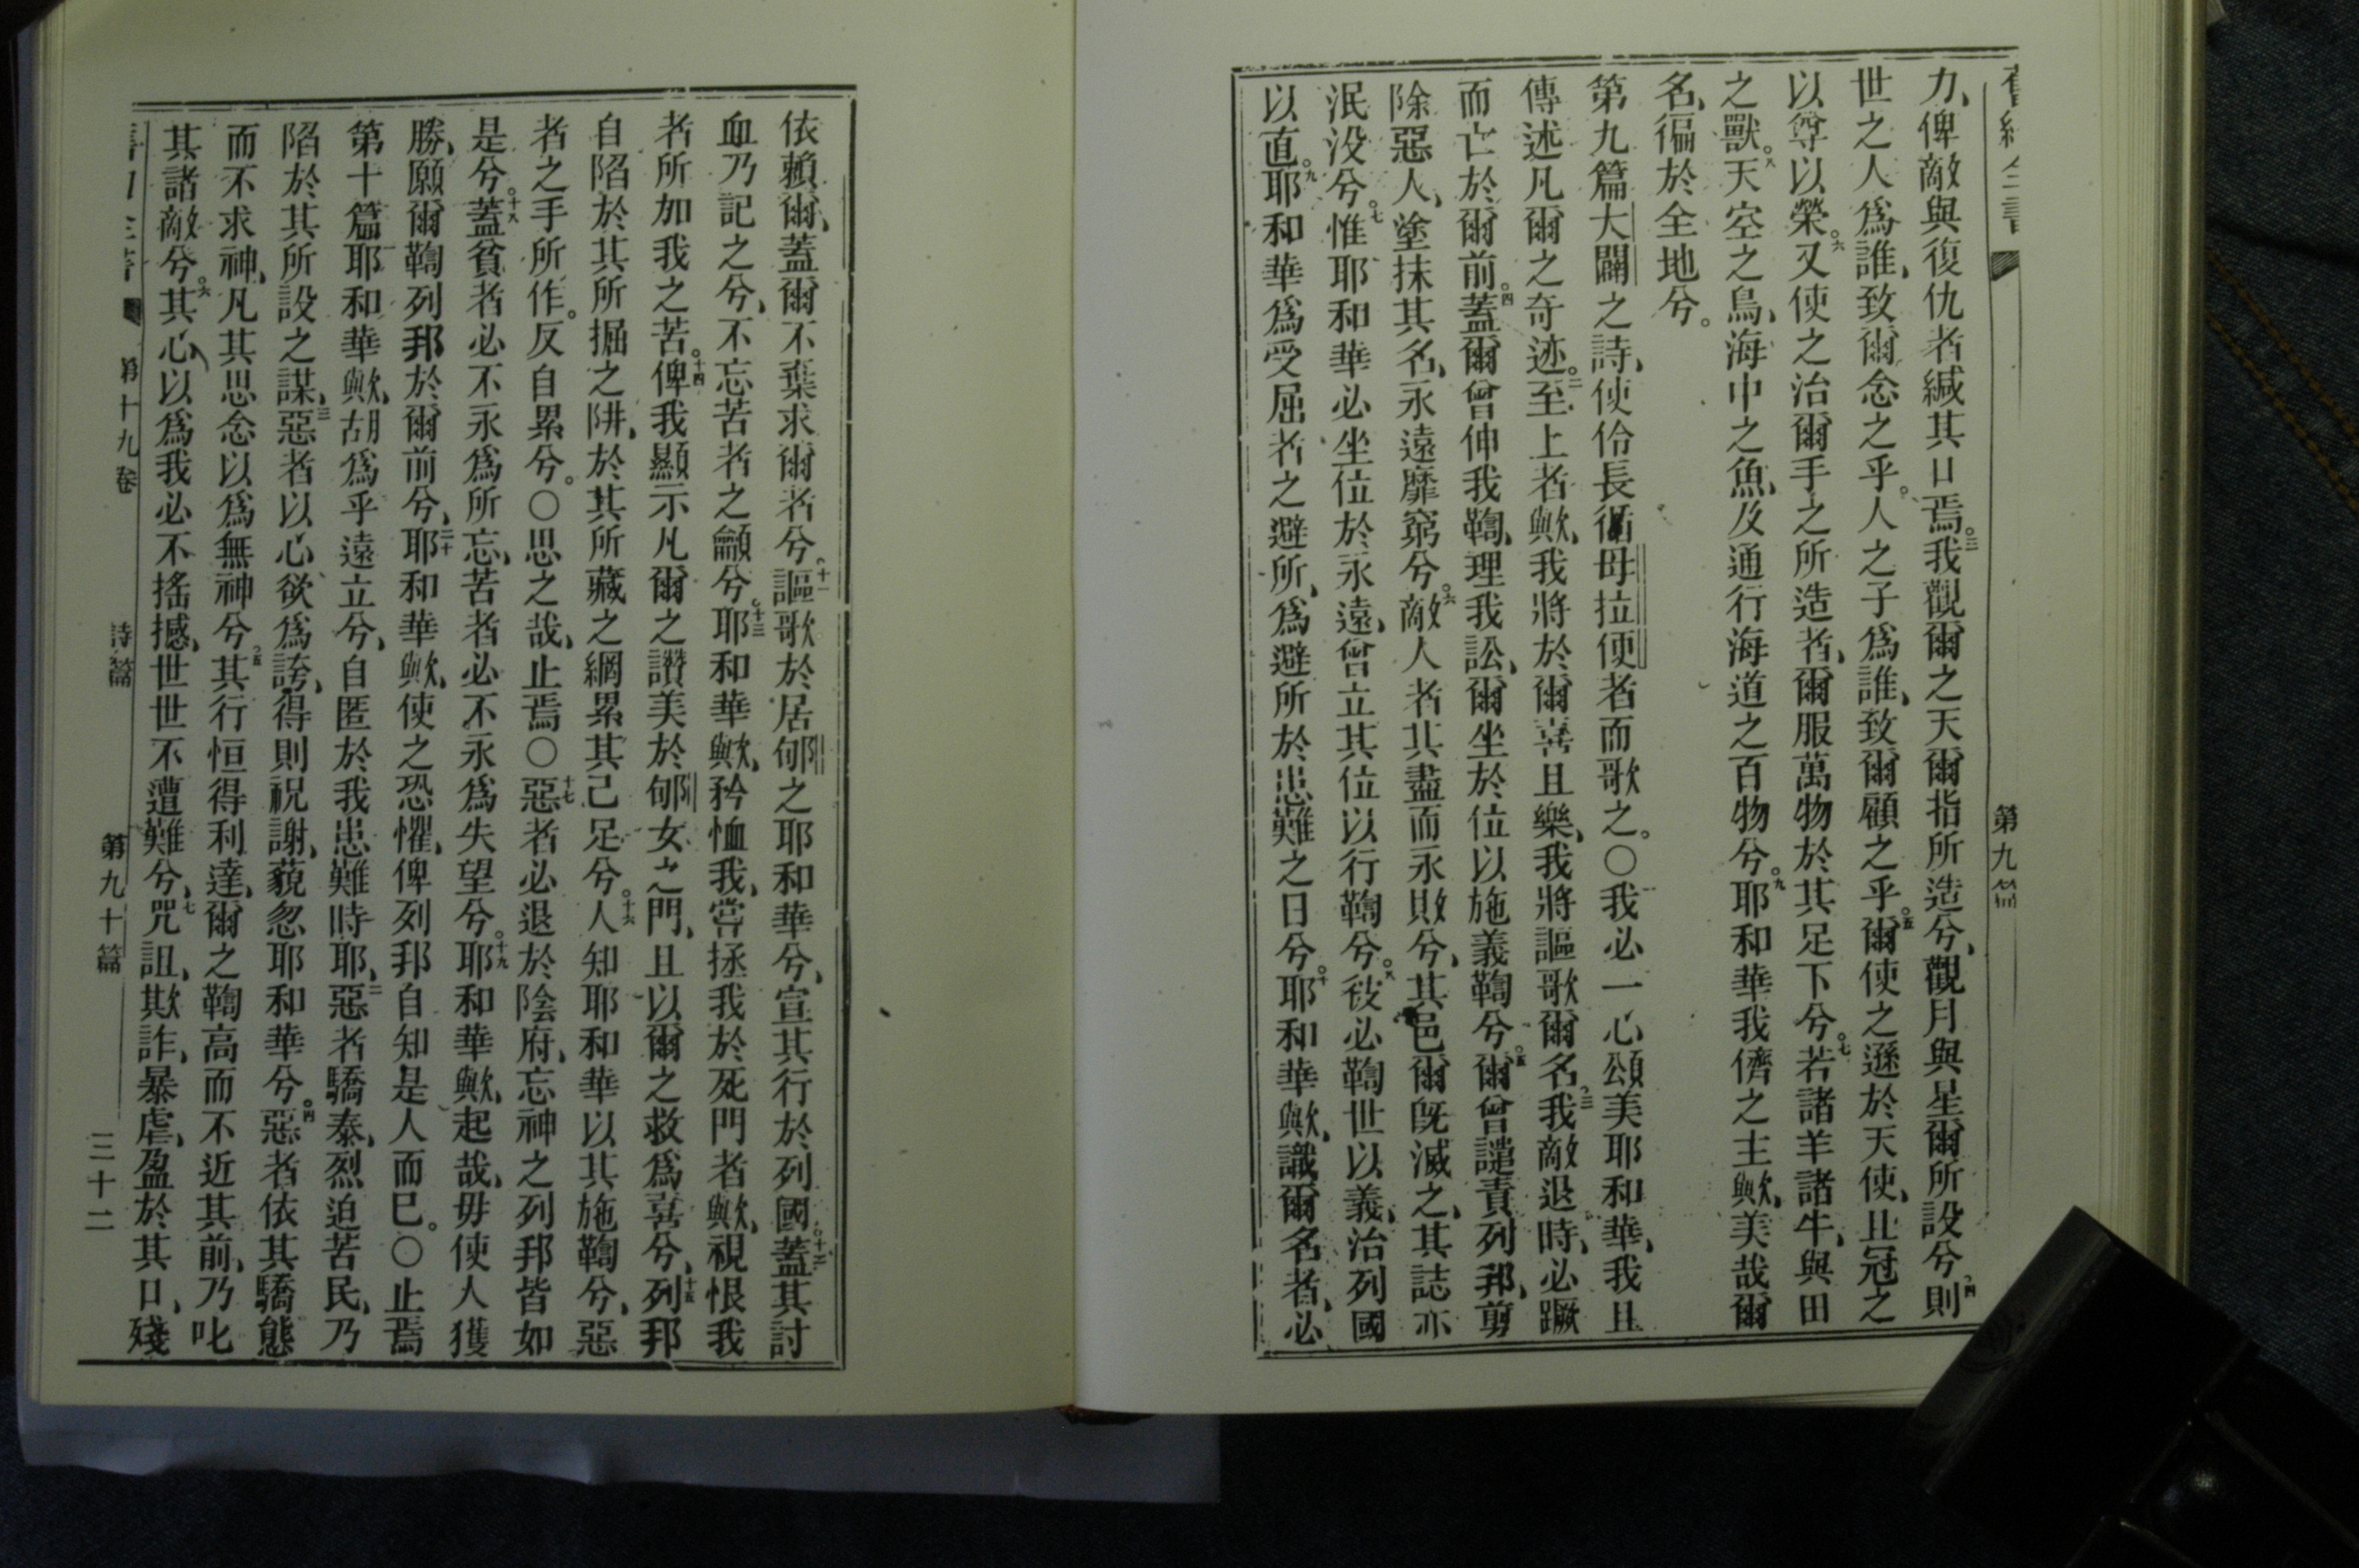 第九篇
力、俾敵與復仇者緘其口焉。三我觀爾之天爾指所造兮、觀月與星爾所設兮、四則
世之人爲誰、致爾念之乎。人之子爲誰、致爾顧之乎。五爾使之遜於天使、且冠之
以尊以榮。六又使之治爾手之所造者、爾服萬物於其足下兮。七若諸羊諸牛、與田
之獸。八天空之鳥、海中之魚、及通行海道之百物兮。九耶和華我儕之主歟、美哉爾
名、徧於全地兮。
第九篇大闢之詩、使伶長循毋拉便者而歌之。〇我必一心頌美耶和華、我且
傳述凡爾之奇迹。二至上者歟、我將於爾喜且樂、我將謳歌爾名。三我敵退時、必蹶
而亡於爾前。四蓋爾曾伸我鞫、理我訟、爾坐於位以施義鞫兮。五爾曾譴責列邦、剪
除惡人、塗抹其名、永遠靡窮兮。六敵人者其盡而永敗兮、其邑爾旣滅之、其誌亦
泯没兮。七惟耶和華必坐位於永遠、曾立其位以行鞫兮。八彼必鞫世以義、治列國
以直。九耶和華爲受屈者之避所、爲避所於患難之日兮。十耶和華歟、識爾名者、必
依賴爾、蓋爾不棄求爾者兮。十一謳歌於居郇之耶和華兮、宣其行於列國。十二蓋其討
血乃記之兮、不忘苦者之籲兮。十三耶和華歟、矜恤我、嘗拯我於死門者歟、視恨我
者所加我之苦。十四俾我顯示凡爾之讚美於郇女之門、且以爾之救爲喜兮、十五列邦
自陷於其所掘之阱、於其所藏之網累其己足兮。十六人知耶和華以其施鞫兮、惡
者之手所作。反自累兮。〇思之哉、止焉〇十七惡者必退於陰府、忘神之列邦皆如
是兮。十八蓋貧者必不永爲所忘、苦者必不永爲失望兮。十九耶和華歟、起哉、毋使人獲
勝、願爾鞫列邦於爾前兮、二十耶和華歟、使之恐懼、俾列邦自知是人而巳。〇止焉
第十篇耶和華歟、胡爲乎遠立兮、自匿於我患難時耶、二惡者驕泰、烈迫苦民、乃
陷於其所設之謀、三惡者以心欲爲誇、得則祝謝、藐忽耶和華兮。四惡者依其驕態
而不求神、凡其思念以爲無神兮。五其行恒得利達、爾之鞫高而不近其前、乃叱
其諸敵兮。六其心以爲我必不搖撼、世世不遭難兮、七咒詛、欺詐、暴虐、盈於其口、殘
第十九卷 詩篇 第九十篇 三十二